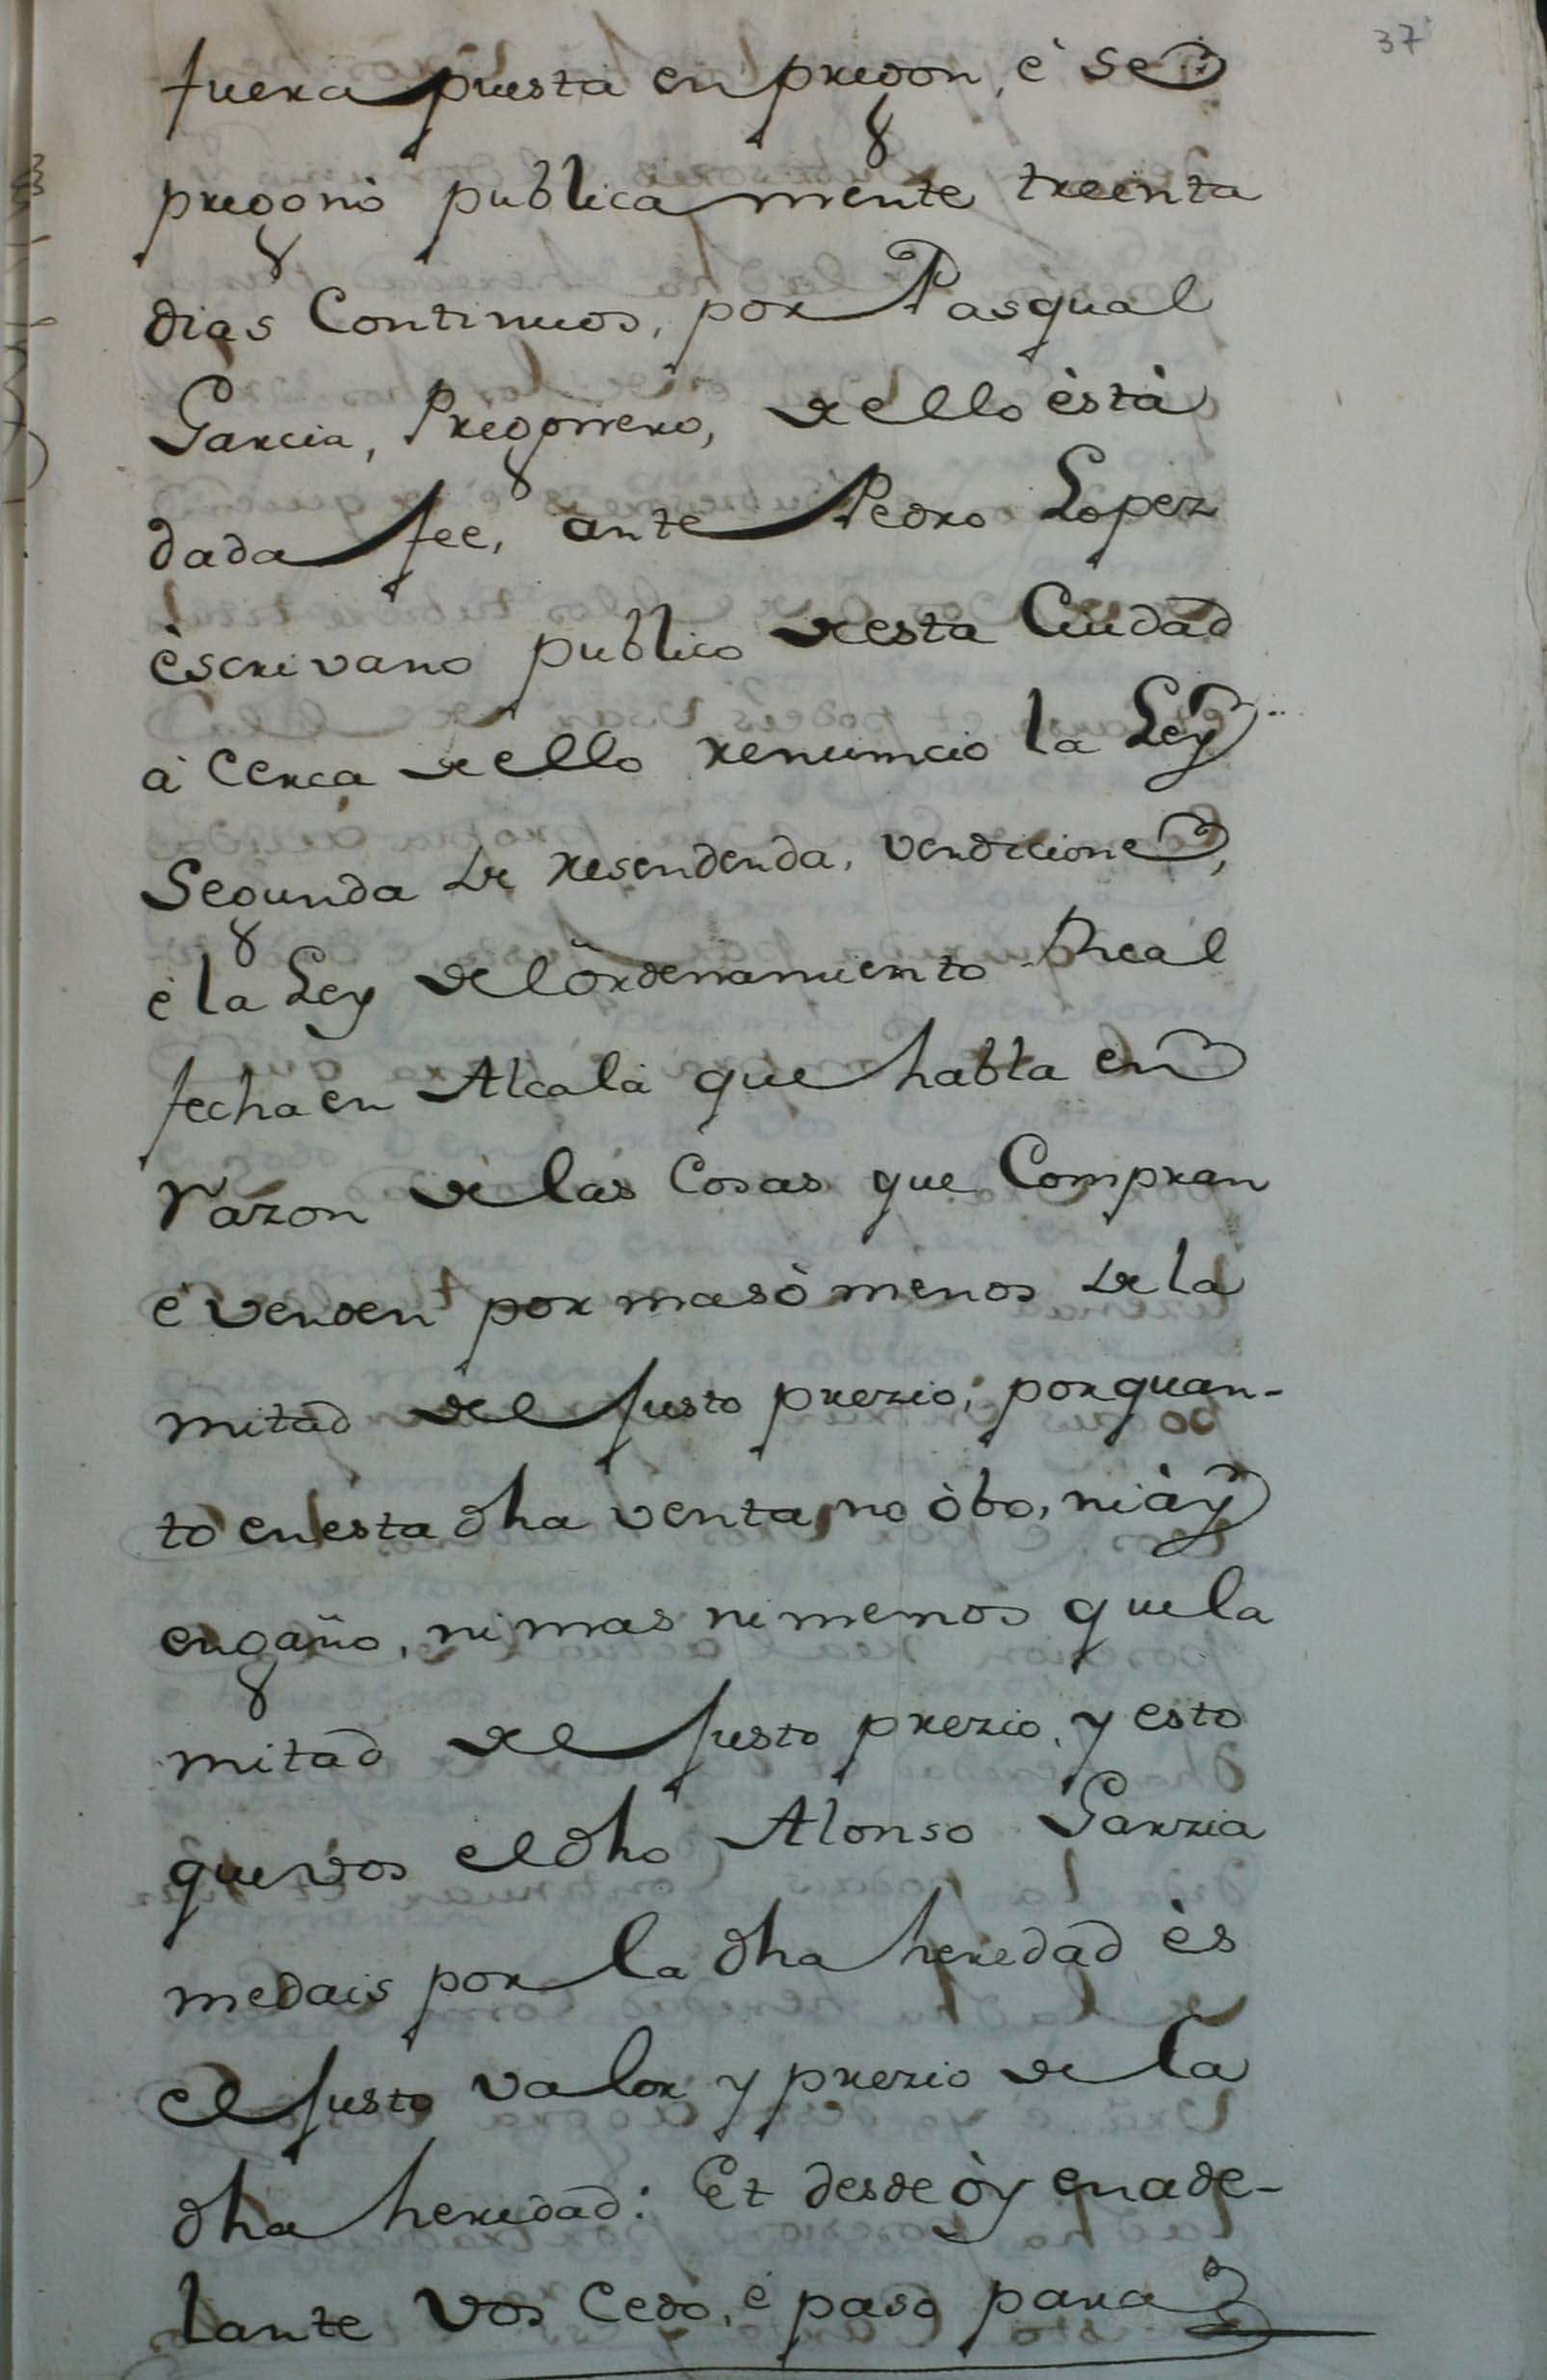 37
fuera puesta en pregon, è se
pregonò publicamente treinta
dias Continuos, por Pasqual
Garcia, Pregonero, dello està
dada fee, ante Pedro Lopez
èscrivano publico desta Ciudad
à Cerca dello renuncio la Ley
Segunda de resendenda, vendicione,
è la Ley del ôrdenamiento Real
fecha en Alcalà que habla en
razon de las Cosas que Compran
è venden por mas ò menos de la
mitad del justo prezio; por quan-
to en esta dha venta no òbo, ni ày
engaño, ni mas ni menos que la
mitad del justo prezio, y esto
que vos el dho Alonso Garzia
me dais por la dha heredad ès
el justo valor y prezio de la
dha heredad: Et desde òy en ade-
lante vos Cedo, è paso para